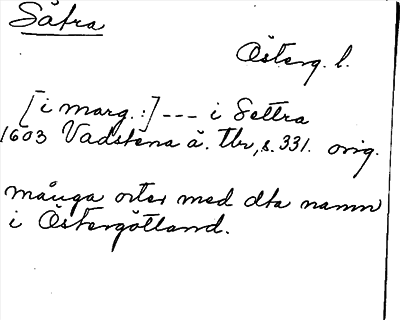 Sätra
Österg. l.
[i marg.:] --- i Settra
1603 Vadstena ä. tbr, s. 331. orig.
många orter med dta namn
i Östergötland.